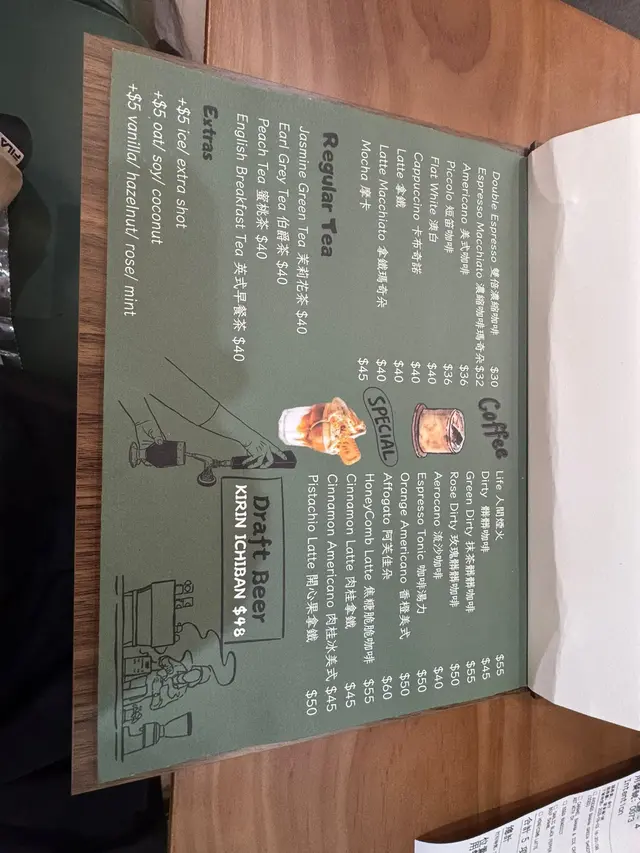 Coffee
Double Espresso 雙倍濃縮咖啡 $30
Espresso Macchiato 濃縮咖啡瑪奇朵 $32
Americano 美式咖啡 $36
Piccolo 短笛咖啡 $36
Flat White 澳白 $40
Cappuccino 卡布奇諾 $40
Latte 拿鐵 $40
Latte Macchiato 拿鐵瑪奇朵 $40
Mocha 摩卡 $45
Life 人間煙火 $55
Dirty 髒髒咖啡 $45
Green Dirty 抹茶髒髒咖啡 $55
Rose Dirty 玫瑰髒髒咖啡 $50
Aerocano 流沙咖啡 $40
Espresso Tonic 咖啡湯力 $50
Orange Americano 香橙美式 $50
SPECIAL
Affogato 阿芙佳朵 $60
HoneyComb Latte 焦糖脆脆咖啡 $55
Cinnamon Latte 肉桂拿鐵 $45
Cinnamon Americano 肉桂冰美式 $45
Pistachio Latte 開心果拿鐵 $50
Regular Tea
Jasmine Green Tea 茉莉花茶 $40
Earl Grey Tea 伯爵茶 $40
Peach Tea 蜜桃茶 $40
English Breakfast Tea 英式早餐茶 $40
Extras
+$5 ice/ extra shot
+$5 oat/ soy/ coconut
+$5 vanilla/ hazelnut/ rose/ mint
Draft Beer
KIRIN ICHIBAN $48
FILA